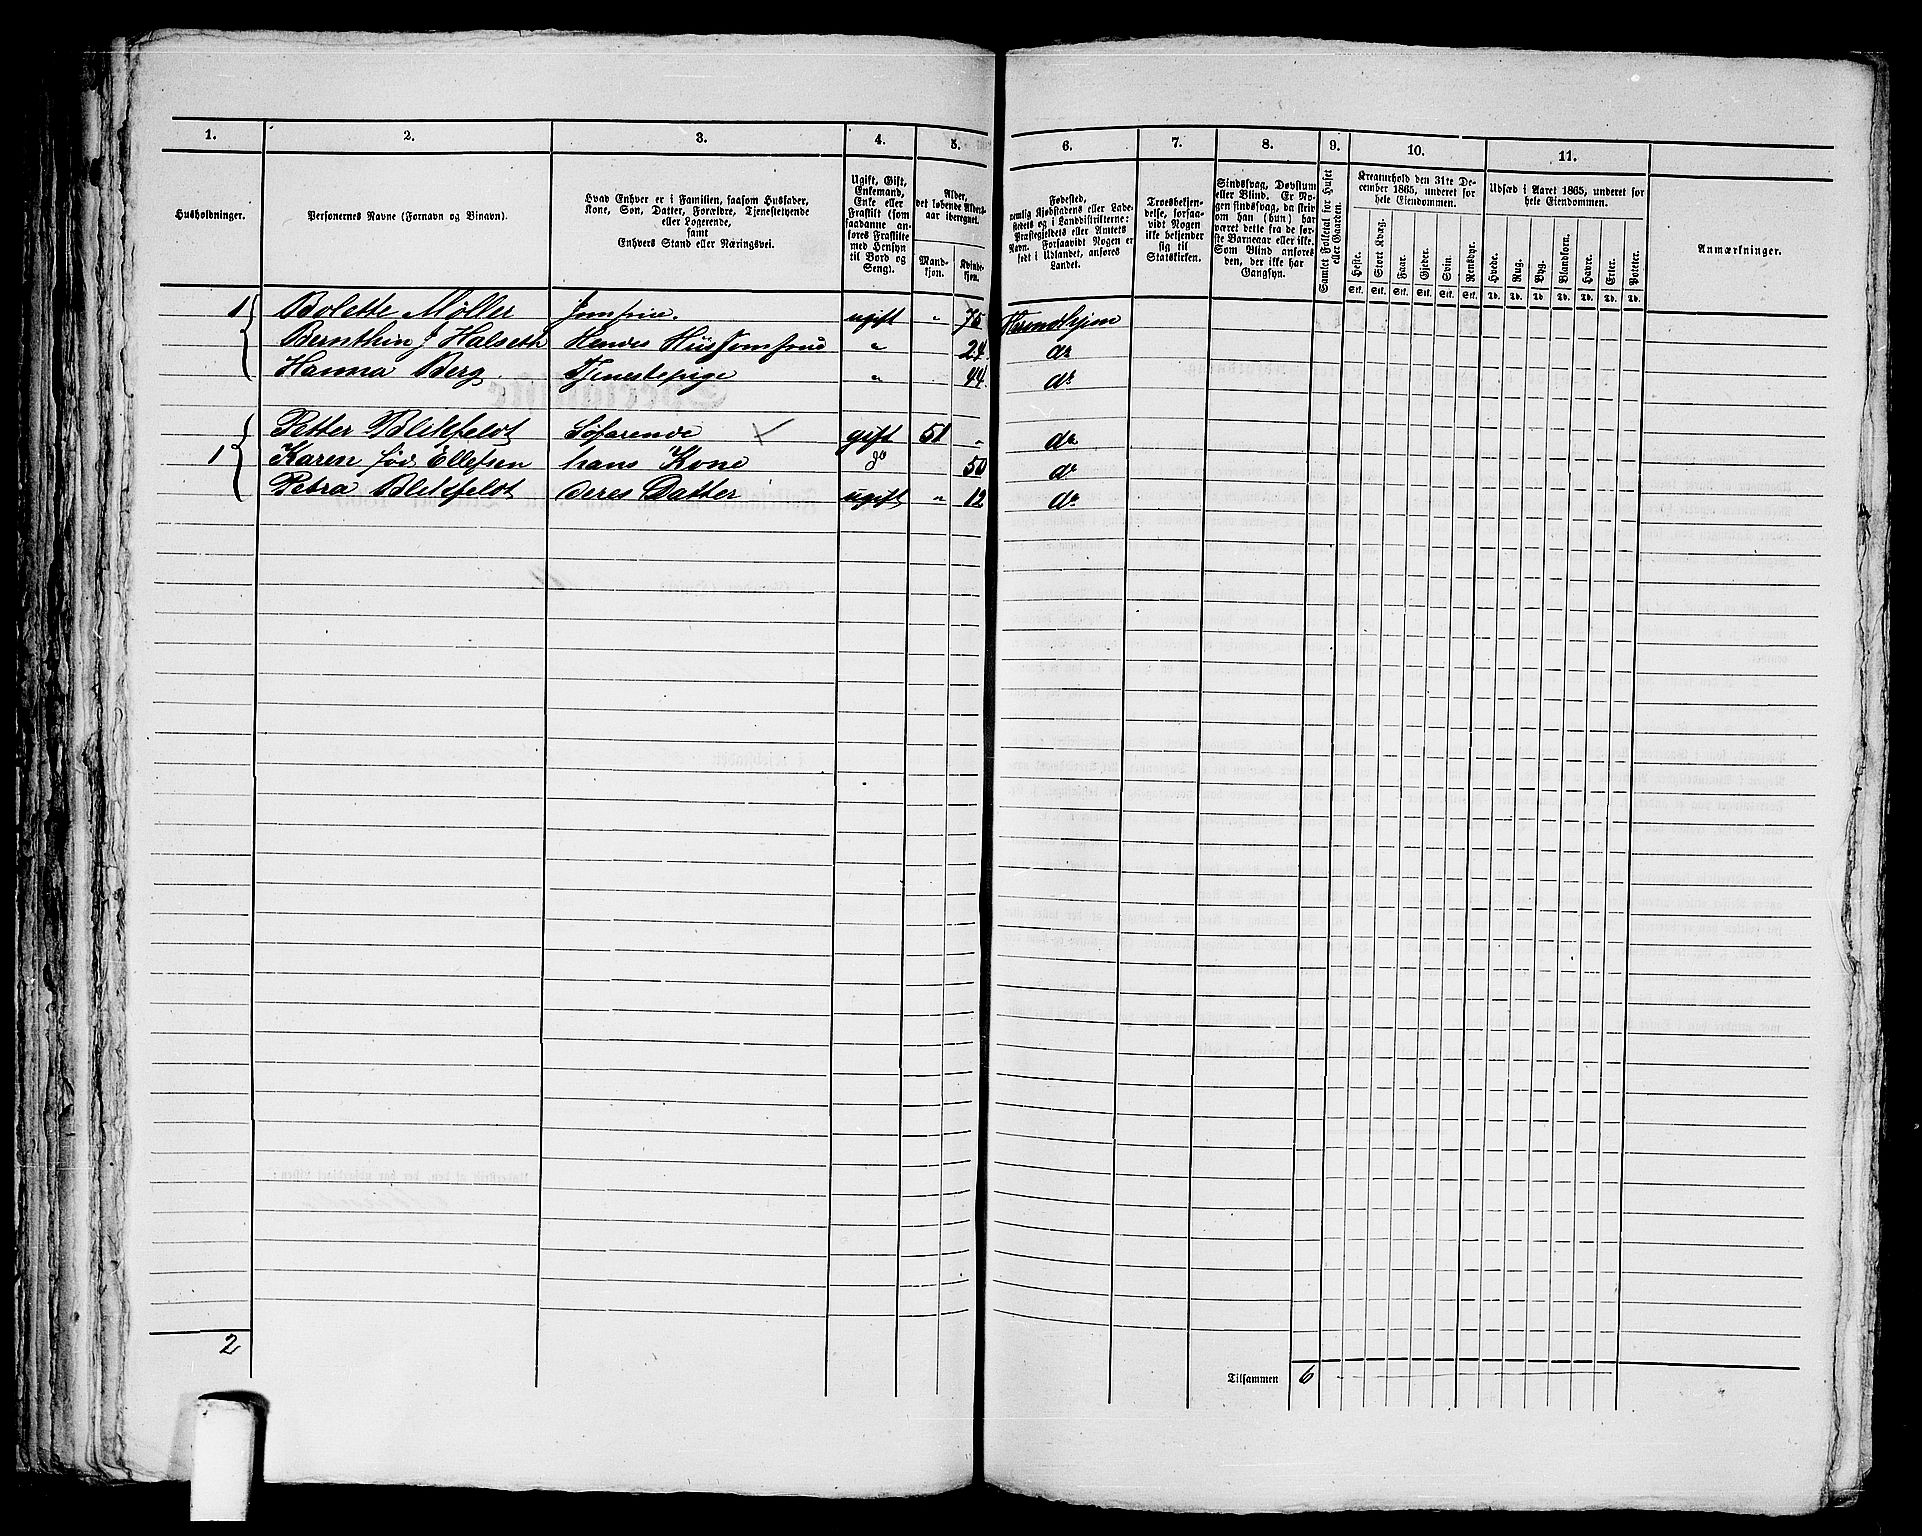 1. 2. 3. 4. 5. 6. 7. 8. 9. 10. 11.
Husholdninger.
Personernes Navne (Fornavn og Binavn).
Hvad Enhver er i Familien, saasom Husfader, Kone, Søn, Datter, Forældre, Tjenestetyende eller Logerende, samt Enhvers Stand eller Næringsvei.
Ugift, Gift, Enkemand, Enke eller Fraskilt (som saadanne anføres Fraskilte med Hensyn til Bord og Seng).
Alder, det løbende Alders-aar iberegnet.
Mand-kjøn. Kvinde-kjøn.
Fødested, nemlig Kjøbstadens eller Ladestedets og i Landdistrikterne: Præstegjeldets eller Amtets Navn. Forsaavidt Nogen er født i Udlandet, anføres Landet.
Troesbekjendelse, forsaavidt Nogen ikke bekjender sig til Statskirken.
Sindssvag, Døvstum eller Blind. Er Nogen sindssvag, da skrives om han (hun) har været dette fra de første Barneaar eller ikke. Som Blind anføres den, der ikke har Gangsyn.
Samlet Folketal for Huset eller Gaarden.
Kreaturhold den 31te December 1865, underet for hele Eiendommen.
Heste. Stort Kvæg. Faar. Gjeder. Svin. Rensdyr.
Stk. Stk. Stk. Stk. Stk. Stk.
Udsæd i Aaret 1865, underet for hele Eiendommen.
Hvede. Rug. Byg. Blandkorn. Havre. Erter. Poteter.
Td. Td. Td. Td. Td. Td. Td.
Anmærkninger.
1 Bolette Møller Jomfrue. ugift " 75 Throndhjem
Bernthin J Halseth Hendes Huusjomfrue " 24 do
Hanna Berg. Tjenestepige " 44 do
1 Petter Blikfeldt Søfarende gift 51 " do
Karen fød Ellefsen hans Kone do 50 do
Petra Blikfeldt deres Datter ugift " 12 do
2
Tilsammen 6